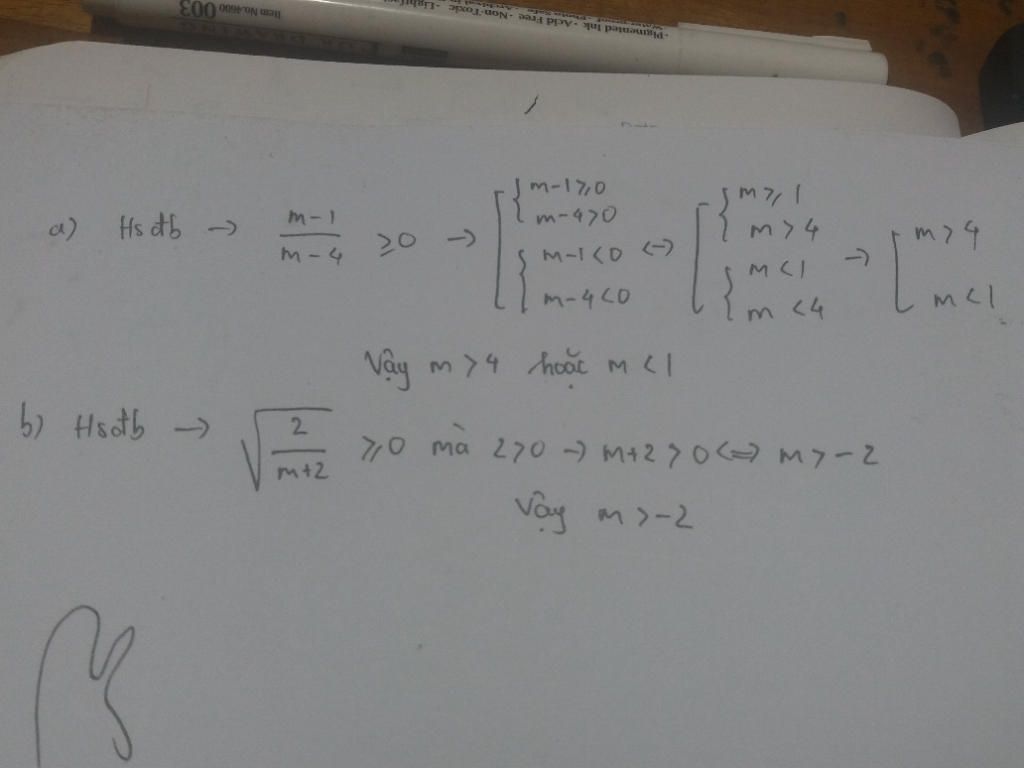 Item No.4600 003
Pigmented Ink · Acid Free · Non-Toxic · Lightfast
a) Hsđb → \frac{m-1}{m-4} ≥ 0 → [ { m-1 ≥ 0 ; m-4 > 0 ; { m-1 < 0 ; m-4 < 0 <-> [ { m ≥ 1 ; m > 4 ; { m < 1 ; m < 4 → [ m > 4 ; m < 1
Vậy m > 4 hoặc m < 1
b) Hsđb → \sqrt{\frac{2}{m+2}} ≥ 0 mà 2 > 0 → m+2 > 0 <=> m > -2
Vậy m > -2